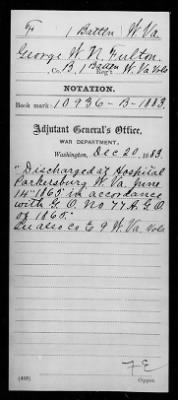 F 1 Battln W. Va.
George W. N. Fulton.
Co. B, 1 Battln W. Va Vols
Reg't
NOTATION.
Book mark: 10936-B-1883.
Adjutant General's Office,
WAR DEPARTMENT,
Washington, Dec 20, 1883.
"Discharged at Hospital
Parkersburg W. Va. June
14" 1865 in accordance
with G. O. No 77 A. G. O.
of 1865."
See also Co E 9 W. Va. Vols
F E
Copyist.